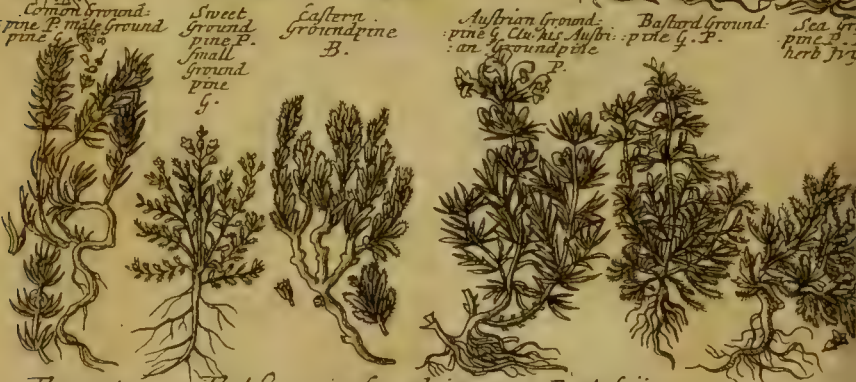 Comon Ground-
pine P. male Ground
pine G.
Sweet
Ground
pine P.
Small
Ground
pine
G.
Eastern
Groundpine
B.
Austrian Ground-
:pine G. Clu: his Austri:
:an Groundpine
P.
Bastard Ground-
:pine G. P.
Sea Gr
pine P.
herb Ivy